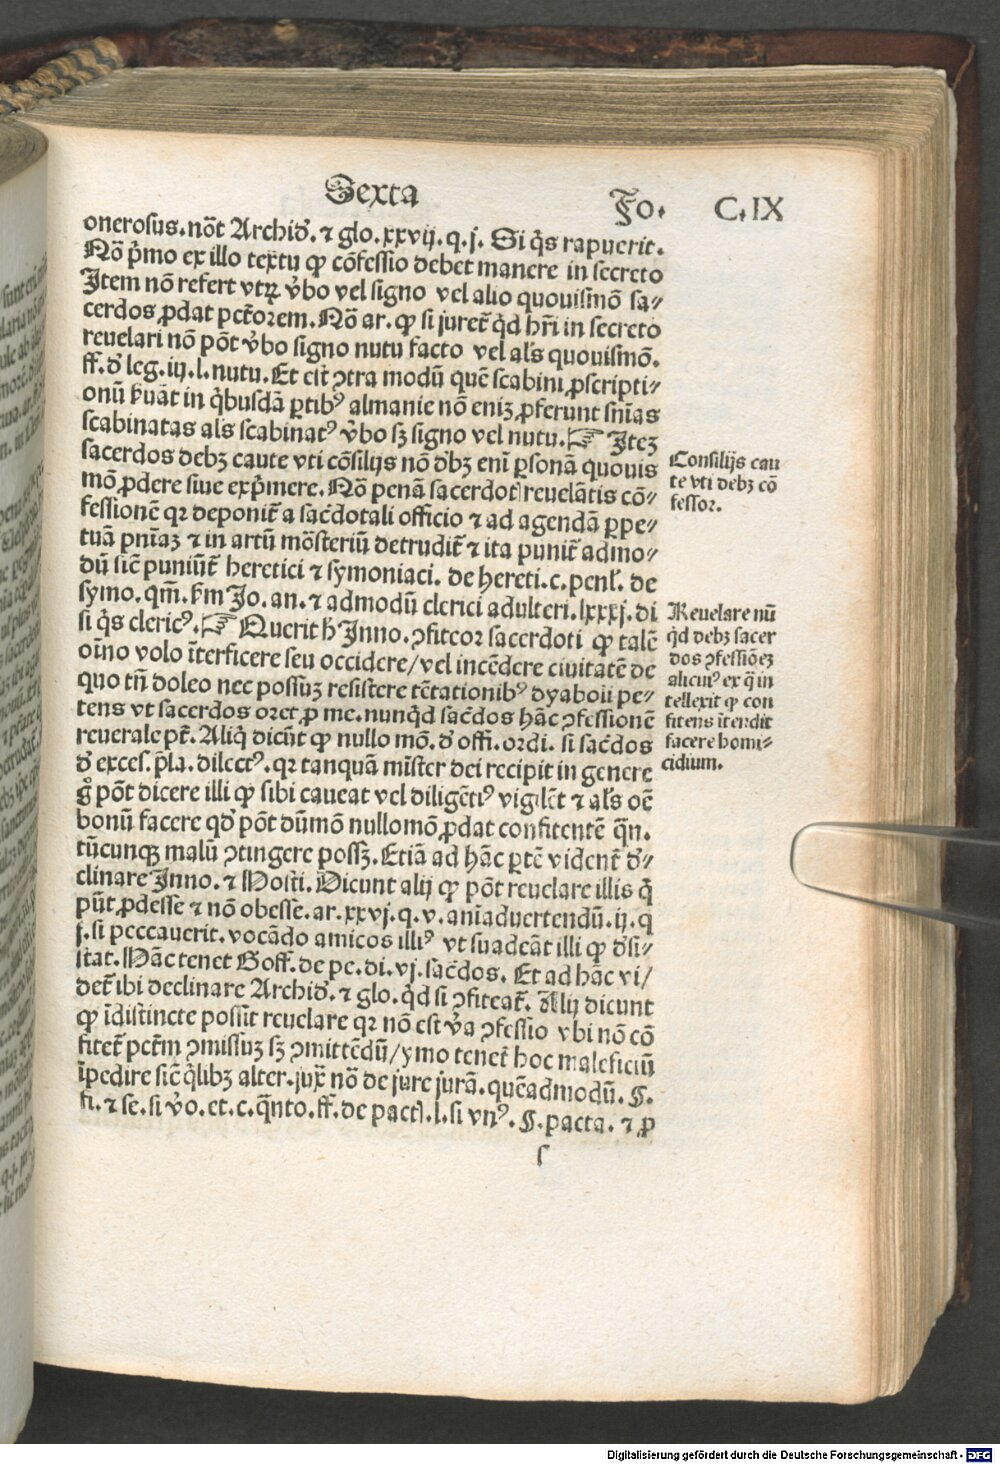 Sexta Fo. C.IX
onerosus. nōt Archid̄. ⁊ glo. xxvij. q. j. Si q̇s rapuerit.
Nō p̄mo ex illo textu ꝙ cōfessio debet manere in secreto
Item nō refert vtꝝ v̄bo vel signo vel alio quouismō sa⸗
cerdos ꝓdat pctōrem. Nō ar. ꝙ si juret̄ q̇d hr̄i in secreto
reuelari nō pōt v̄bo signo nutu facto vel al̓s quouismō.
ff. d̓ leg. iij. l. nutu. Et est ↄtra modū quē scabini ꝓscripti⸗
onū s̓uāt in q̇busdā ꝑtibꝰ almanie nō eniꝫ ꝓferunt sn̄ias
scabinatas al̓s scabinatꝰ v̄bo sꝫ signo vel nutu. ☞ Iteꝫ
sacerdos debꝫ caute vti cōsilijs nō d̓bꝫ eni ꝑsonā quouis
mō ꝓdere siue exp̄mere. Nō penā sacerdotꝭ reuelātis cō⸗
fessionē qꝛ deponit̄ a sac̄dotali officio ⁊ ad agendā ꝑpe⸗
tuā pn̄iaꝫ ⁊ in artū mōsteriū detrudit̄ ⁊ ita punit̄ admo⸗
dū sic̄ puniūt̄ heretici ⁊ symoniaci. de hereti. c. penl̓. de
symo. qm̄. s̓m Jo. an. ⁊ admodū clerici adulteri. lxxxj. di
si q̇s clericꝰ. ☞ Querit h̓ Inno. ↄfiteor sacerdoti ꝙ talē
oīno volo īterficere seu occidere/vel incēdere ciuitatē de
quo tn̄ doleo nec possuꝫ resistere tētationibꝰ dyaboli pe⸗
tens vt sacerdos oret ꝓ me. nunq̇d sac̄dos hāc ↄfessionē
reuerale pt̄. Aliq̇ dicūt ꝙ nullo mō. d̓ offi. ordi. si sac̄dos
d̓ exces. p̄la. dilectꝰ. qꝛ tanquā mīster dei recipit in genere
g̊ pōt dicere illi ꝙ sibi caueat vel diligētiꝰ vigilēt ⁊ al̓s oē
bonū facere qd̓ pōt dūmō nullomō ꝓdat confitentē q̄n.
tūcunqꝫ malū ↄtingere possꝫ. Etiā ad hāc ꝑtē vident̄ d̓⸗
clinare Inno. ⁊ Hosti. Dicunt alij ꝙ pōt reuelare illis q̇
pn̄t ꝓdesse ⁊ nō obesse. ar. xxvj. q. v. aniaduertendū. ij. q
j. si peccauerit. vocādo amicos illiꝰ vt suadeāt illi ꝙ d̓si⸗
stat. Hāc tenet Goff. de pe. di. vj. sac̄dos. Et ad hāc vi/
det̄ ibi declinare Archid̄. ⁊ glo. q̇d si ↄfiteat̄. Alij dicunt
ꝙ īdistincte possūt reuelare qꝛ nō est v̄a ↄfessio vbi nō cō
fitet̄ pctm̄ ↄmissuꝫ sꝫ ↄmittēdū/ymo tenet̄ hoc maleficiū
īpedire sic̄ q̇libꝫ alter. jux̄ nō de jure jurā. quēadmodū. §.
fi. ⁊ se. si v̄o. et. c. q̄nto. ff. de pactꝭ. l. si vnꝰ. §. pacta. ⁊ ꝓ
s
Consilijs cau
te vti debꝫ cō
fessor.
Reuelare nū
q̇d debꝫ sacer
dos ↄfessiōeꝫ
alicuiꝰ ex q̄ in
tellexit ꝙ con
fitens ītendit
facere homi⸗
cidium.
Digitalisierung gefördert durch die Deutsche Forschungsgemeinschaft - DFG